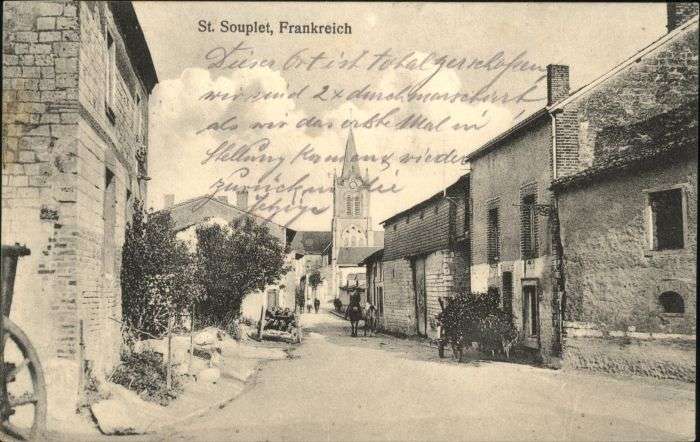 St. Souplet, Frankreich
Dieser Ort ist total zerschossen
wir sind 2x durchmarschiert
als wir das erste Mal in
Stellung kamen & wieder
zurück in die